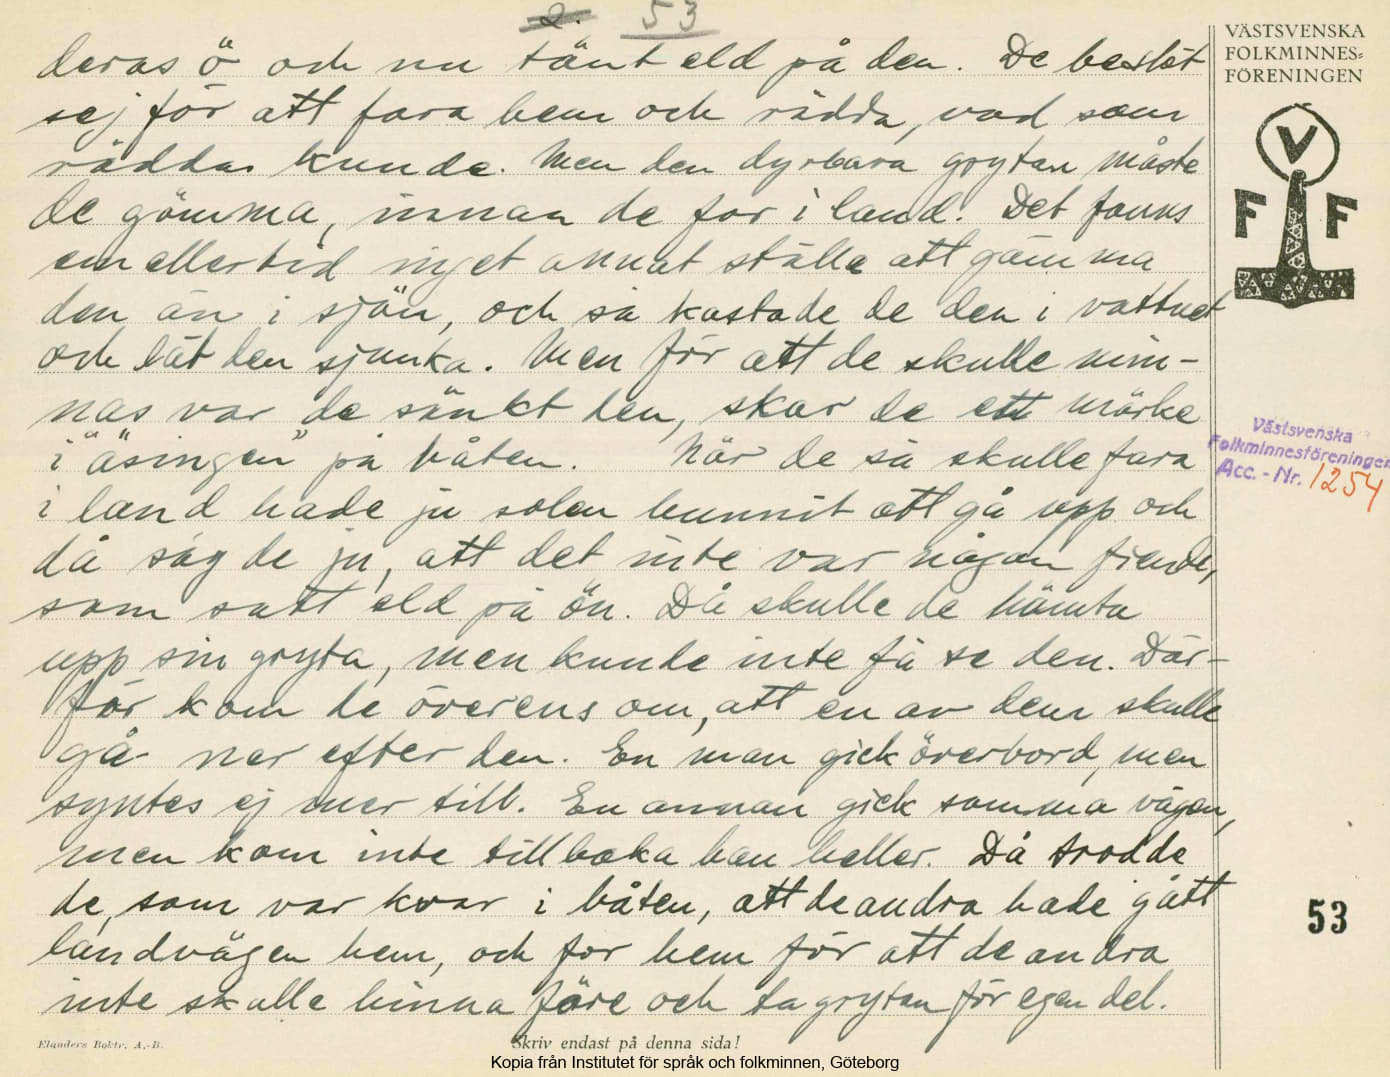 2. 53
deras ö och nu tänt eld på den. De beslöt
sej för att fara hem och rädda, vad som
räddas kunde. Men den dyrbara grytan måste
de gömma, innan de for i land. Det fanns
emellertid inget annat ställe att gömma
den än i sjön, och så kastade de den i vattnet
och lät den sjunka. Men för att de skulle min-
nas var de sänkt den, skar de ett märke
i "äsingen" på båten. När de så skulle fara
i land hade ju solen hunnit att gå upp och
då såg de ju, att det inte var någon fiende,
som satt eld på ön. Då skulle de hämta
upp sin gryta, men kunde inte få se den. Där-
för kom de överens om, att en av dem skulle
gå ner efter den. En man gick överbord, men
syntes ej mer till. En annan gick samma vägen,
men kom inte tillbaka han heller. Då trodde
de, som var kvar i båten, att de andra hade gått
landvägen hem, och for hem för att de andra
inte skulle hinna före och ta grytan för egen del.
VÄSTSVENSKA
FOLKMINNES=
FÖRENINGEN
V
F F
Västsvenska
Folkminnesföreningen
Acc. - Nr. 1254
53
Elanders Boktr. A.-B.
Skriv endast på denna sida!
Kopia från Institutet för språk och folkminnen, Göteborg